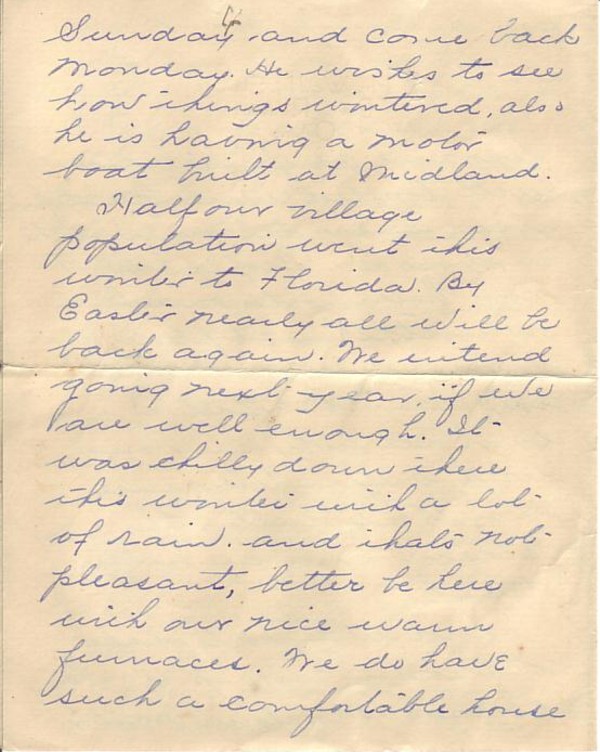 4
Sunday and come back
Monday. He wishes to see
how things wintered, also
he is having a motor
boat built at Midland.
Half our village
population went this
winter to Florida. By
Easter nearly all will be
back again. We intend
going next year, if we
are well enough. It
was chilly down there
this winter with a lot
of rain. and thats not
pleasant, better be here
with our nice warm
furnaces. We do have
such a comfortable house